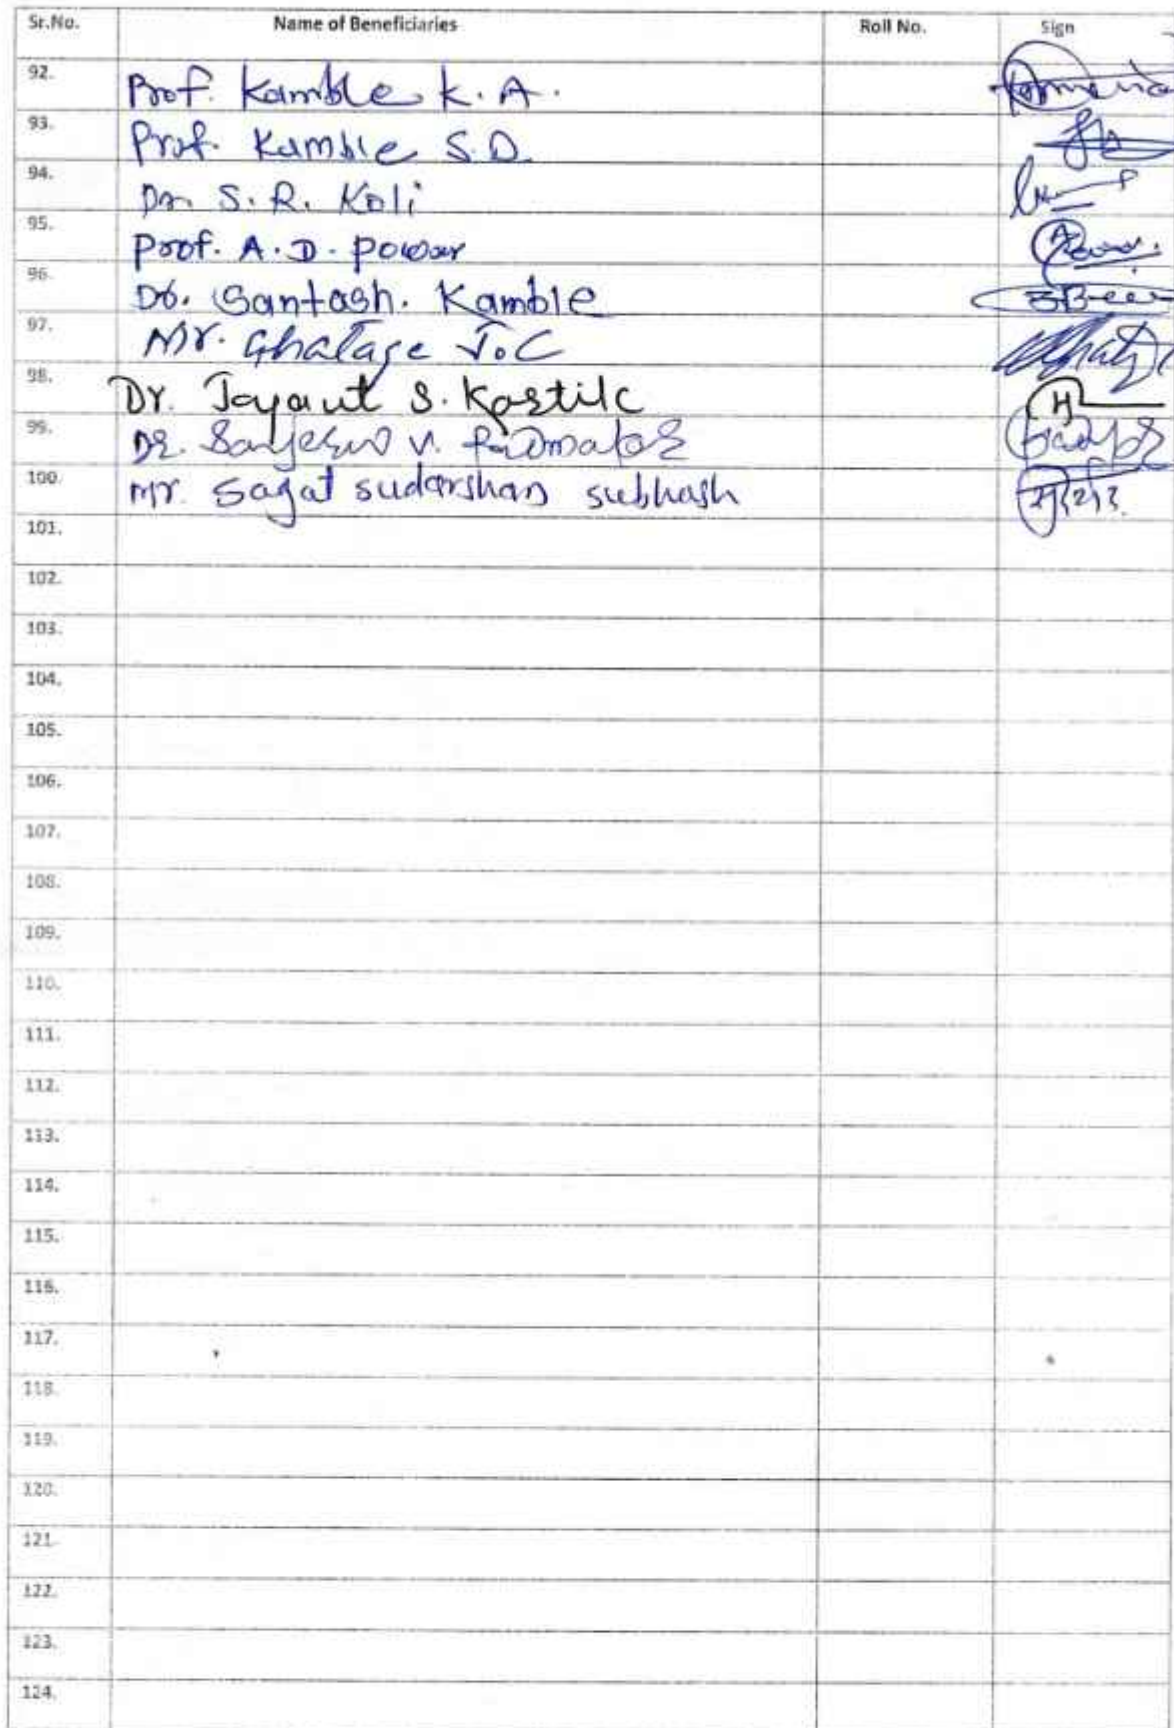 Sr.No. Name of Beneficiaries Roll No. Sign
92. Prof. Kamble K. A.
93. Prof. Kamble S.D.
94. Dr. S. R. Koli
95. Prof. A. D. Powar
96. Dr. Santosh. Kamble
97. Mr. Ghatage J.C
98. Dr. Jayant S.
99. Dr. V.
100. Mr. Sagat sudarshan subhash
101.
102.
103.
104.
105.
106.
107.
108.
109.
110.
111.
112.
113.
114.
115.
116.
117.
118.
119.
120.
121.
122.
123.
124.